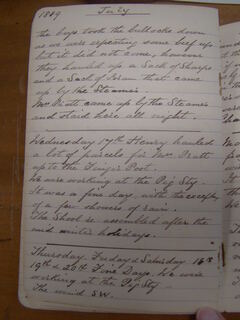 1889 July
the boys took the bullocks down
as we were expecting some beef up
but it did not come, however
they hauled up a Sack of Sharps
and a Sack of Bran that came
up by the Steamer
Mr Pratt came up by the Steamer
and staid here all night.
Wednesday 17th Henry hauled
a lot of parcels for Mr Pratt
up to the Finger Post.
We were working at the Pig Sty.
It was a fine day with the exception
of a few showers of rain.
The School re-assembled after the
mid winter holidays.
Thursday Friday & Saturday 18th
19th & 20th Fine Days. We were
working at the Pig Sty.
The wind SW.